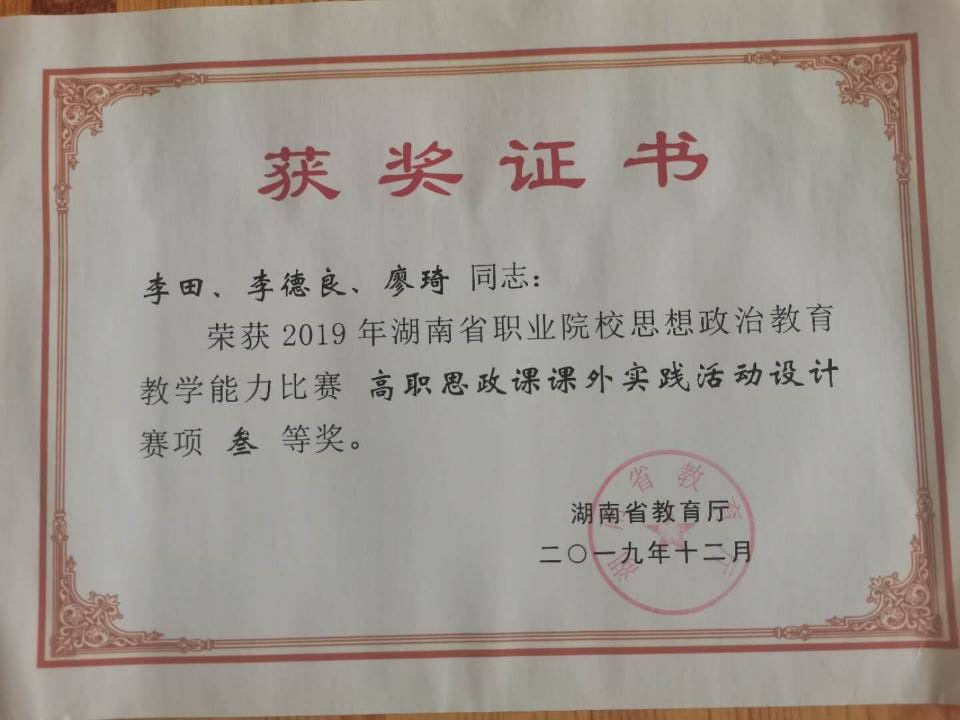 获奖证书
李田、李德良、廖琦 同志：
荣获2019年湖南省职业院校思想政治教育
教学能力比赛 高职思政课课外实践活动设计
赛项 叁 等奖。
湖南省教育厅
二〇一九年十二月
湖南省教育厅